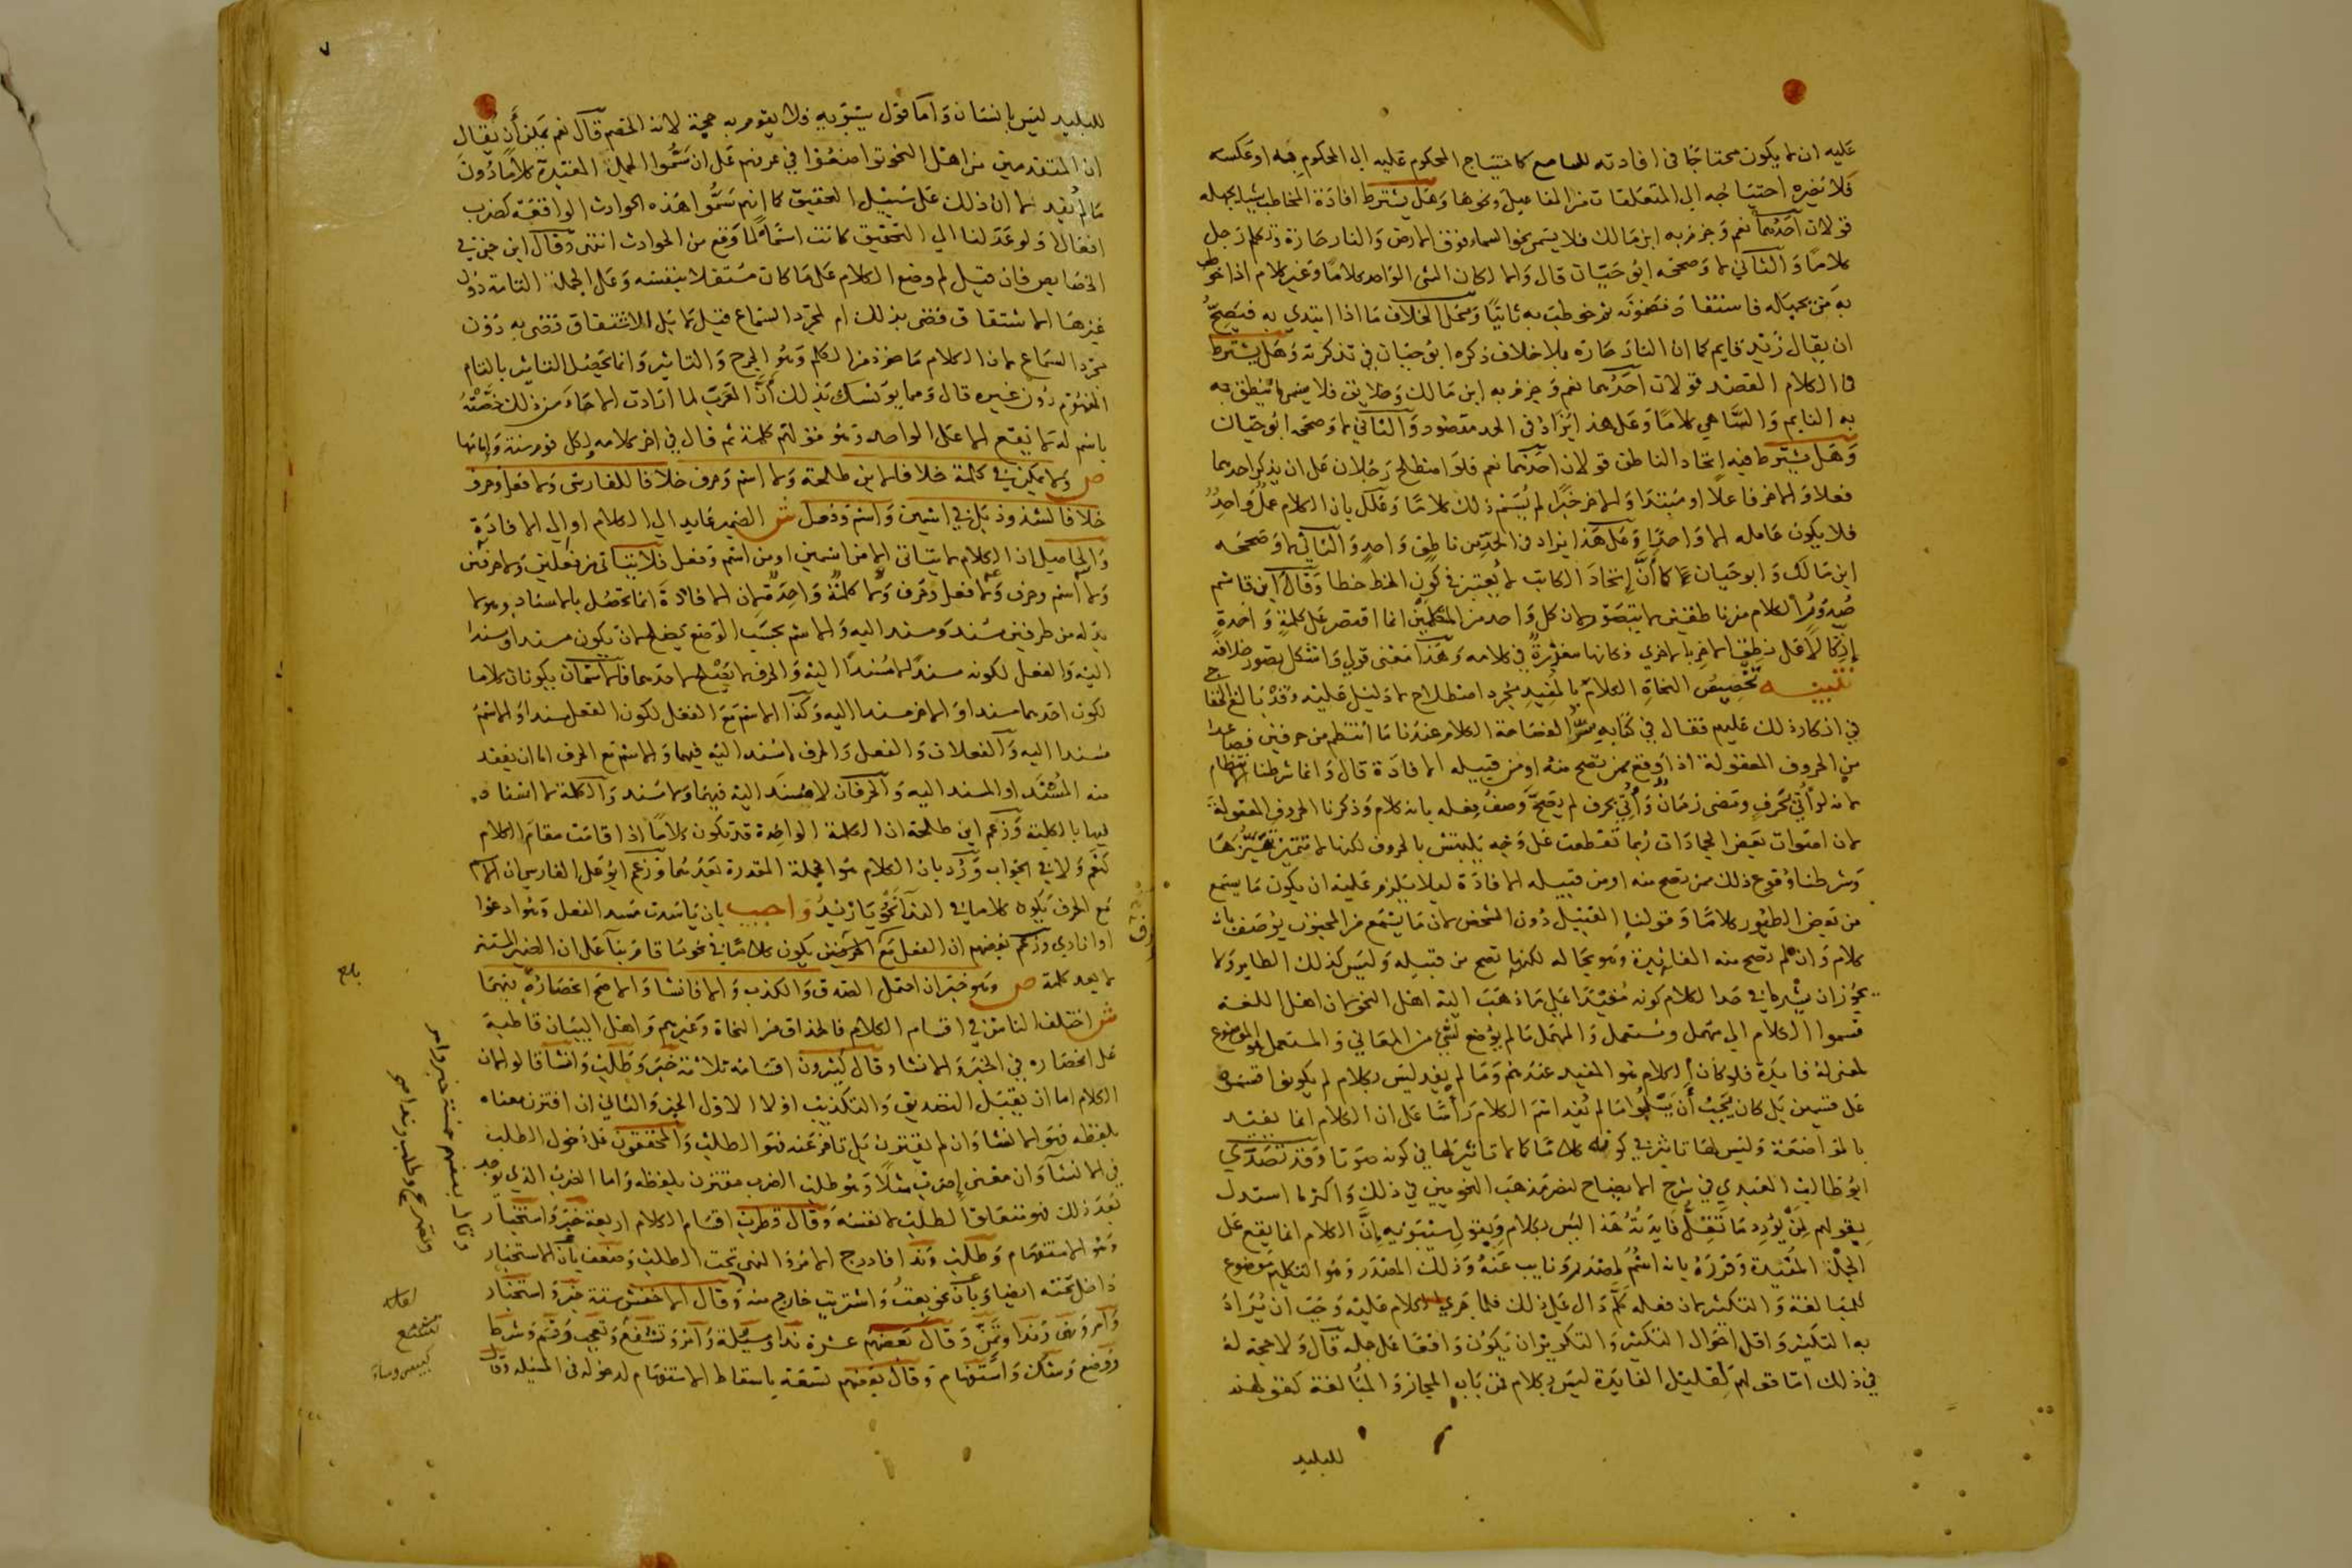 عليه ان لا يكون محتاجا في افادته للسامع كاحتياج المحكوم عليه الى المحكوم به او عكسه
فلا يضره احتياجه الى المتعلقات من المفاعيل ونحوها وهل يشترط افادة المخاطب شيا يجهله
قولان احدهما نعم وجزم به ابن مالك فلا يسمى نحو السماء فوق الارض والنار حارة وتكلم رجل
كلاما والثاني لا وصححه ابو حيان قال والا لكان الشي الواحد كلاما وغير كلام اذا خوطب
به من يجهله فاستفاد مضمونه ثم خوطب به ثانيا ومحل الخلاف ما اذا ابتدي به فيصح
ان يقال زيد قايم كما ان النار حارة بلا خلاف ذكره ابو حيان في تذكرته وهل يشترط
في الكلام القصد قولان احدهما نعم وجزم به ابن مالك وخلايق فلا يسمى ما ينطق به
به النايم والساهي كلاما وعلى هذا يزاد في الحد مقصود والثاني لا وصححه ابو حيان
وهل يشترط فيه اتحاد الناطق قولان احدهما نعم فلو اصطلح رجلان على ان يذكر احدهما
فعلا والاخر فاعلا او مبتدا والاخر خبرا لم يسم ذلك كلاما وعلل بان الكلام عمل واحد
فلا يكون عامله الا واحدا وعلى هذا يزاد في الحد من ناطق واحد والثاني لا وصححه
ابن مالك وابو حيان كما ان اتحاد الكاتب لا يعتبر في كون الخط خطا وقال ابن قاسم
صدور الكلام من ناطقين لا يتصور لان كل واحد من المتكلمين انما اقتصر على كلمة واحدة
اتكالا على نطق الاخر بالاخري فكانها مقدرة في كلامه وهذا معنى قولي واستشكل تصور خلافه
تنبيه تخصيص النحاة الكلام بالمفيد مجرد اصطلاح لا دليل عليه وقد بالغ الخفاجي
في انكار ذلك عليهم فقال في كتابه سر الفصاحة الكلام عندنا ما انتظم من حرفين فصاعدا
من الحروف المعقولة اذا وقع ممن تصح منه او من قبيله الافادة قال وانما شرطنا الانتظام
لانه لو أتي بحرف ومضى زمان وأتي بحرف لم يصح وصف فعله بانه كلام وذكرنا الحروف المعقولة
لان اصوات بعض الجمادات ربما تقطعت على وجه يلتبس بالحروف لكنها لا تتميز تميزها
وشرطنا وقوع ذلك ممن تصح منه او من قبيله الافادة ليلا يلزم عليه ان يكون ما يسمع
من بعض الطيور كلاما وقولنا القبيل دون الشخص لان ما يسمع من المجنون يوصف بانه
كلام وان لم تصح منه الفائدة وهو بحاله لكنها تصح من قبيله وليس كذلك الطاير ولا
يجوز ان يشرط في حد الكلام كونه مفيدا على ما ذهب اليه اهل النحو لان اهل اللغة
قسموا الكلام الى مهمل ومستعمل والمهمل ما لم يوضع لشي من المعاني والمستعمل الموضوع
لمعنى له فايدة فلو كان الكلام هو المفيد عندهم وما لم يفد ليس بكلام لم يكونوا قسموه
على قسمين بل كان يجب أن يسلبوا ما لم يفد اسم الكلام رأسا على ان الكلام انما يفيد
بالمواضعة وليس لها تاثير في كونه كلاما كما لا تاثير لها في كونه صوتا وقد تصدي
ابو طالب العبدي في شرح الايضاح لنصر مذهب النحويين في ذلك واكثر ما استدل
بقولهم لمن يورد ما تقل فايدته هذا ليس بكلام وبقول سيبويه ان الكلام انما يقع على
الجمل المفيدة وقرره بانه اسم لمصدر ونايب عنه وذلك المصدر هو التكليم موضوع
للمبالغة والتكثير لان فعله كلم دال على ذلك فلما جري الكلام عليه وجب ان يراد
به التكثير واقل احوال التكثير والتكرير ان يكون واقعا على جملة قال ولا حجة له
في ذلك اما قولهم لقليل الفايدة ليس بكلام فمن باب المجاز والمبالغة كقولهم
للبليد
٧
للبليد ليس بانسان واما قول سيبويه فلا يقوم به حجة لان الخصم قال نعم يمكن أن يقال
ان المتقدمين من اهل النحو تواضعوا في عرفهم على ان سموا الجمل المفيدة كلاما دون
ما لم يفد لا ان ذلك على سبيل التحقيق كما انهم سموا هذه الحوادث الواقعة كضرب
افعالا ولو عدلنا الى التحقيق كانت اسماء لما وقع من الحوادث انتهى وقال ابن جني في
الخصايص فان قيل لم وضع الكلام على ما كان مستقلا بنفسه وعلى الجملة التامة دون
غيرها الاشتقاق قضى بذلك ام لمجرد السماع قيل لا بل الاشتقاق قضى به دون
مجرد السماع لان الكلام ماخوذ من الكلم وهو الجرح والتاثير وانما يحصل التاثير بالتام
المفهوم دون غيره قال ومما يونسك بذلك أن العرب لما ارادت الاحاد من ذلك خصته
باسم له لا يقع الا على الواحد وهو قولهم كلمة ثم قال في اخر كلامه ولكل قوم سنة وامامها
ص ولا يمكن في كلمة خلافا لابن طلحة ولا اسم وحرف خلافا للفارسي ولا فعل وحرف
خلافا لشذوذ بل في اسمين واسم وفعل ش الضمير عايد الى الكلام او الى الافادة
والحاصل ان الكلام لا يتاتى الا من اسمين او من اسم وفعل فلا يتاتى من فعلين ولا حرفين
ولا اسم وحرف ولا فعل وحرف ولا كلمة واحدة لان الافادة انما تحصل بالاسناد وهو لا
بد له من طرفين مسند ومسند اليه والاسم بحسب الوضع يصلح لان يكون مسندا ومسندا
اليه والفعل لكونه مسندا لا مسندا اليه والحرف لا يصلح لاحدهما فالاسمان يكونان كلاما
لكون احدهما مسندا والاخر مسندا اليه وكذا الاسم مع الفعل لكون الفعل مسندا والاسم
مسندا اليه والفعلان والفعل والحرف لا مسند اليه فيهما والاسم مع الحرف اما ان يفقد
منه المسند او المسند اليه والحرفان لا مسند اليه فيهما ولا مسند والكلمة لا اسناد
فيها بالكلية وزعم ابن طلحة ان الكلمة الواحدة قد تكون كلاما اذا قامت مقام الكلام
كنعم ولا في الجواب ورد بان الكلام هو الجملة المقدرة بعدهما وزعم ابو علي الفارسي ان الاسم
مع الحرف يكون كلاما في النداء نحو يا زيد واجيب بان يا سدت مسد الفعل وهو ادعوا
او انادي وزعم بعضهم ان الفعل مع الحرف يكون كلاما في نحو ما قام بناء على ان الضمير المستتر
لا يعد كلمة ص وهو خبر ان احتمل الصدق والكذب والا فانشا والاصح انحصاره فيهما
ش اختلف الناس في اقسام الكلام فالحذاق من النحاة وغيرهم واهل البيان قاطبة
على انحصاره في الخبر والانشا وقال كثيرون اقسامه ثلاثة خبر وطلب وانشا قالوا لان
الكلام اما ان يقبل التصديق والتكذيب او لا الاول الخبر والثاني ان اقترن معناه
بلفظه فهو الانشا وان لم يقترن بل تاخر عنه فهو الطلب والمحققون على دخول الطلب
في الانشاء وان معنى إضرب مثلا وهو طلب الضرب مقترن بلفظه واما الضرب الذي يوجد
بعد ذلك فهو متعلق الطلب لا نفسه وقال قطرب اقسام الكلام اربعة خبر واستخبار
وهو الاستفهام وطلب وندا فادرج الامر والنهي تحت الطلب وضعف بأن الاستخبار
داخل تحته ايضا وبأن نحو بعت واشتريت خارج منه وقال الاخفش ستة خبر واستخبار
وامر ونهى وندا وتمن وقال بعضهم عشرة ندا ومسئلة وأمر وتشفع وتعجب وقسم وشرط
ووضع وشك واستفهام وقال بعضهم تسعة باسقاط الاستفهام لدخوله في المسئله وقال
بلغ
وقال بعضهم خمسة خبر وامر
وتصريح وطلب وندا صح
لعله
تشفع